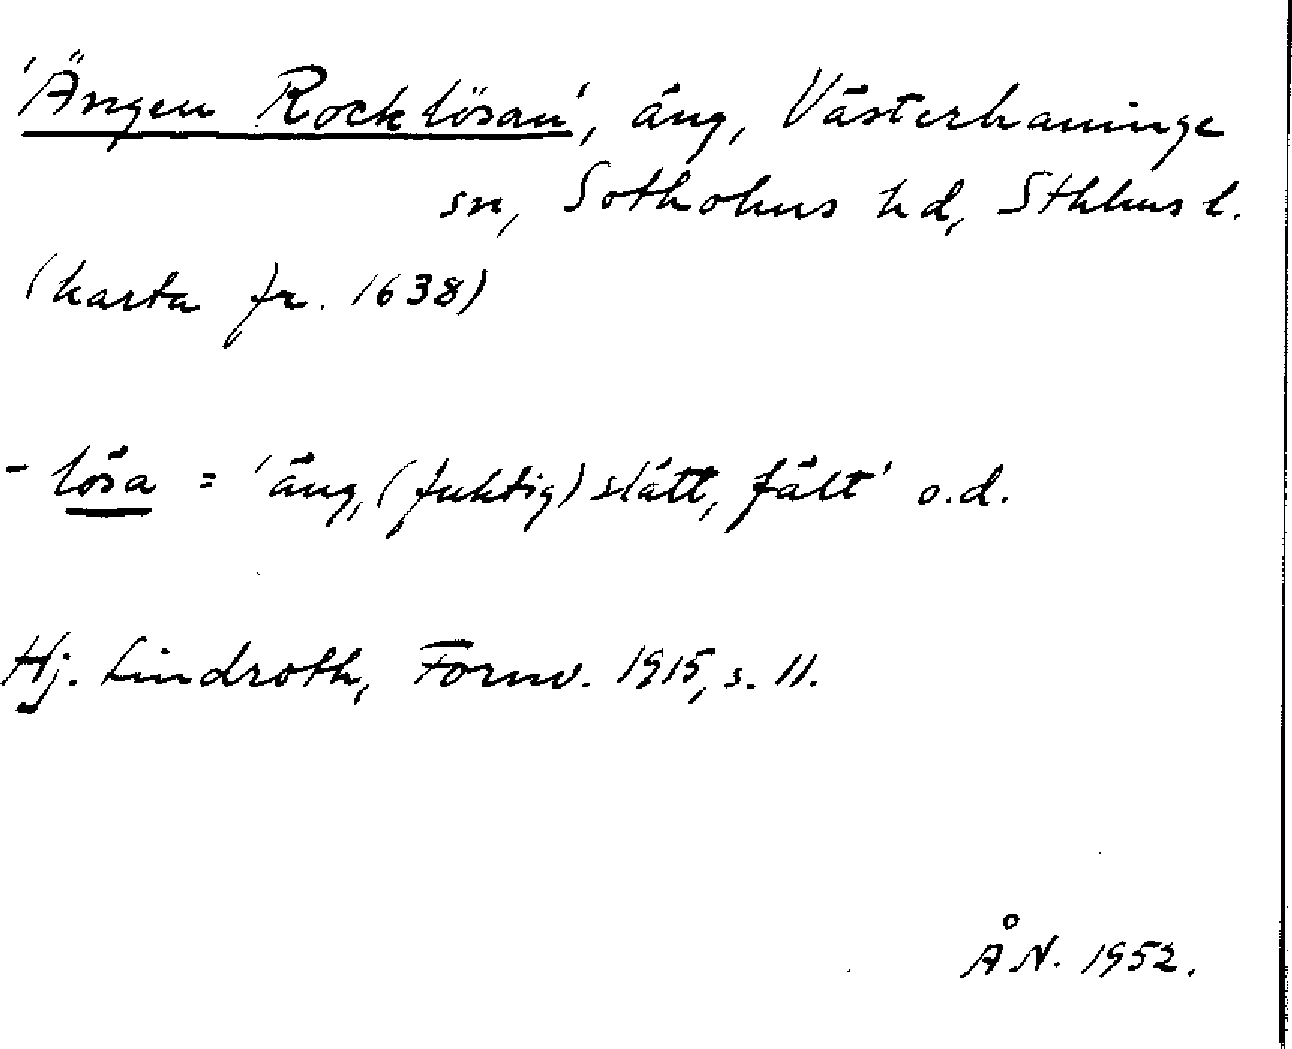 'Ängen Rocklösan', äng, Västerhaninge
sn, Sotholms hd, Sthlms l.
(karta fr. 1638)
- lösa = 'äng, (fuktig) slätt, fält' o.d.
Hj. Lindroth, Fornv. 1915, s. 11.
ÅN. 1952.